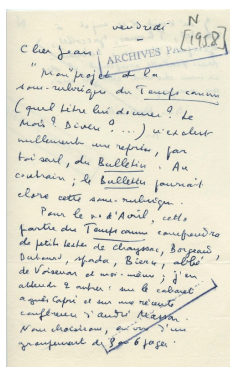 vendredi
N
[1958]
Cher Jean,
ARCHIVES PA
"Mon" projet de la
sous-rubrique du Temps comme
(quel titre lui donner ? Le
Mois ? Divers ? ...) n'exclut
nullement une reprise, par
toi seul, du Bulletin. Au
contraire ; le Bulletin pourrait
clore cette sous-rubrique.
Pour le n° d'Avril, cette
partie du Temps comme comprendra
de petits textes de Chaissac, Borgeaud,
Dubourd, Bierre, abbé
de Voisenon et moi-même ; j'en
attends 2 autres : sur le cabaret
Agnès Capri et sur une récente
conférence d'André Masson.
Nous choisirons, en vue d'un
groupement de 5 ou 6 pages.